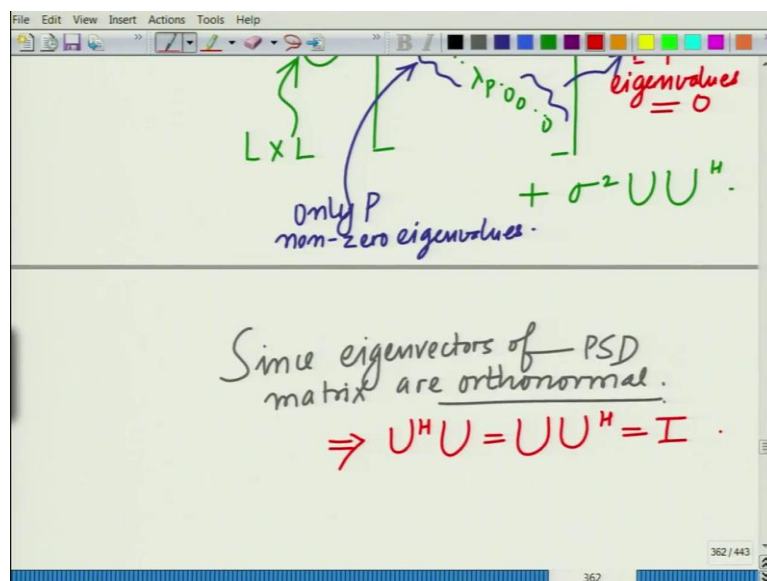 File Edit View Insert Actions Tools Help
B I
eigenvalues
= 0
λp 0 0 . 0
L x L
+ σ² U Uᴴ.
only P
non-zero eigenvalues.
Since eigenvectors of PSD
matrix are orthonormal.
⇒ UᴴU = UUᴴ = I .
362 / 443
362